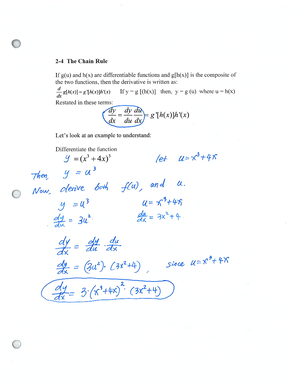 2-4 The Chain Rule
If g(u) and h(x) are differentiable functions and g[h(x)] is the composite of
the two functions, then the derivative is written as:
d/dx g[h(x)] = g'[h(x)]h'(x) If y = g [(h(x)] then, y = g (u) where u = h(x)
Restated in these terms:
dy/dx = dy/du du/dx = g'[h(x)]h'(x)
Let's look at an example to understand:
Differentiate the function
y = (x³ + 4x)³ let u = x³+4x
Then, y = u³
Now, derive both f(u), and u.
y = u³ u = x³+4x
dy/du = 3u² du/dx = 3x²+4
dy/dx = dy/du · du/dx
dy/dx = (3u²) · (3x²+4), since u = x³+4x
dy/dx = 3·(x³+4x)² · (3x²+4)